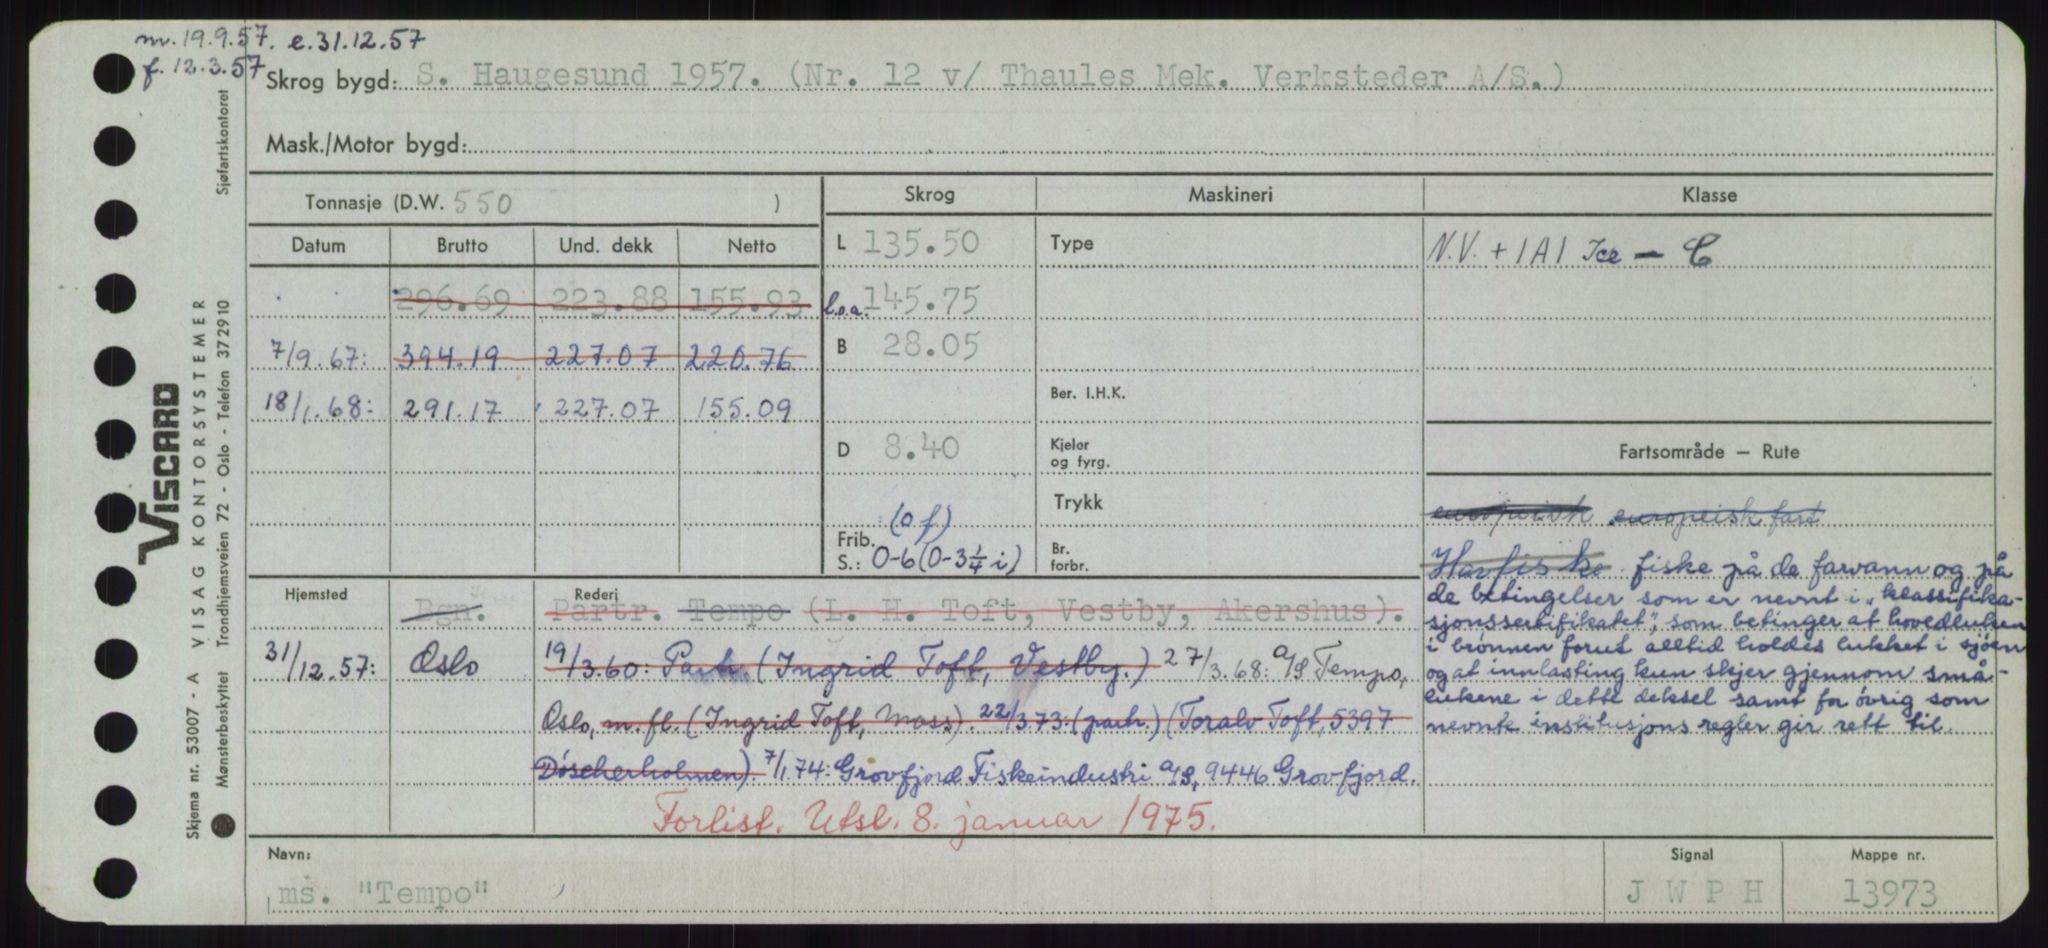 m. 19.9.57. e.31.12.57
f. 12.3.57
Skrog bygd: S. Haugesund 1957. (Nr. 12 v/ Thaules Mek. Verksteder A/S.)
Mask./Motor bygd:
Tonnasje (D.W. 550 )
Datum Brutto Und. dekk Netto
296.69 223.88 155.93
7/9.67: 394.19 227.07 220.76
18/1.68: 291.17 227.07 155.09
Skrog
L 135.50
l.o.a. 145.75
B 28.05
D 8.40
(of)
Frib.
S.: 0-6 (0-3 1/4 i)
Maskineri
Type
Ber. I.H.K.
Kjeler
og fyrg.
Trykk
Br.
forbr.
Klasse
N.V. + 1A1 Ice - C
Fartsområde — Rute
europeisk europeisk fart
Havfiske fiske på de farvann og på
de betingelser som er nevnt i "klassifika-
sjonssertifikatet", som betinger at hovedluken
i brønnen forut alltid holdes lukket i sjøen
og at innlasting kun skjer gjennom små-
lukene i dette deksel samt for øvrig som
nevnte institusjons regler gir rett til.
Hjemsted Bgn.
Rederi Partr. Tempo (L. H. Toft, Vestby, Akershus).
31/12.57: Oslo 19/3.60: Partr. (Ingrid Toft, Vestby.) 27/3.68: A/S Tempo,
Oslo, m.fl. (Ingrid Toft, Moss). 22/3.73: (partr.) (Toralv Toft, 5397
Døscherholmen). 7/1.74: Grovfjord Fiskeindustri A/S, 9446 Grovfjord.
Forlist. Utsl. 8. januar 1975.
Navn:
ms. "Tempo"
Signal
J W P H
Mappe nr.
13973
Skjema nr. 53007 - A VISAG KONTORSYSTEMER Sjøfartskontoret
Mønsterbeskyttet Trondhjemsveien 72 - Oslo - Telefon 372910
VISCARD